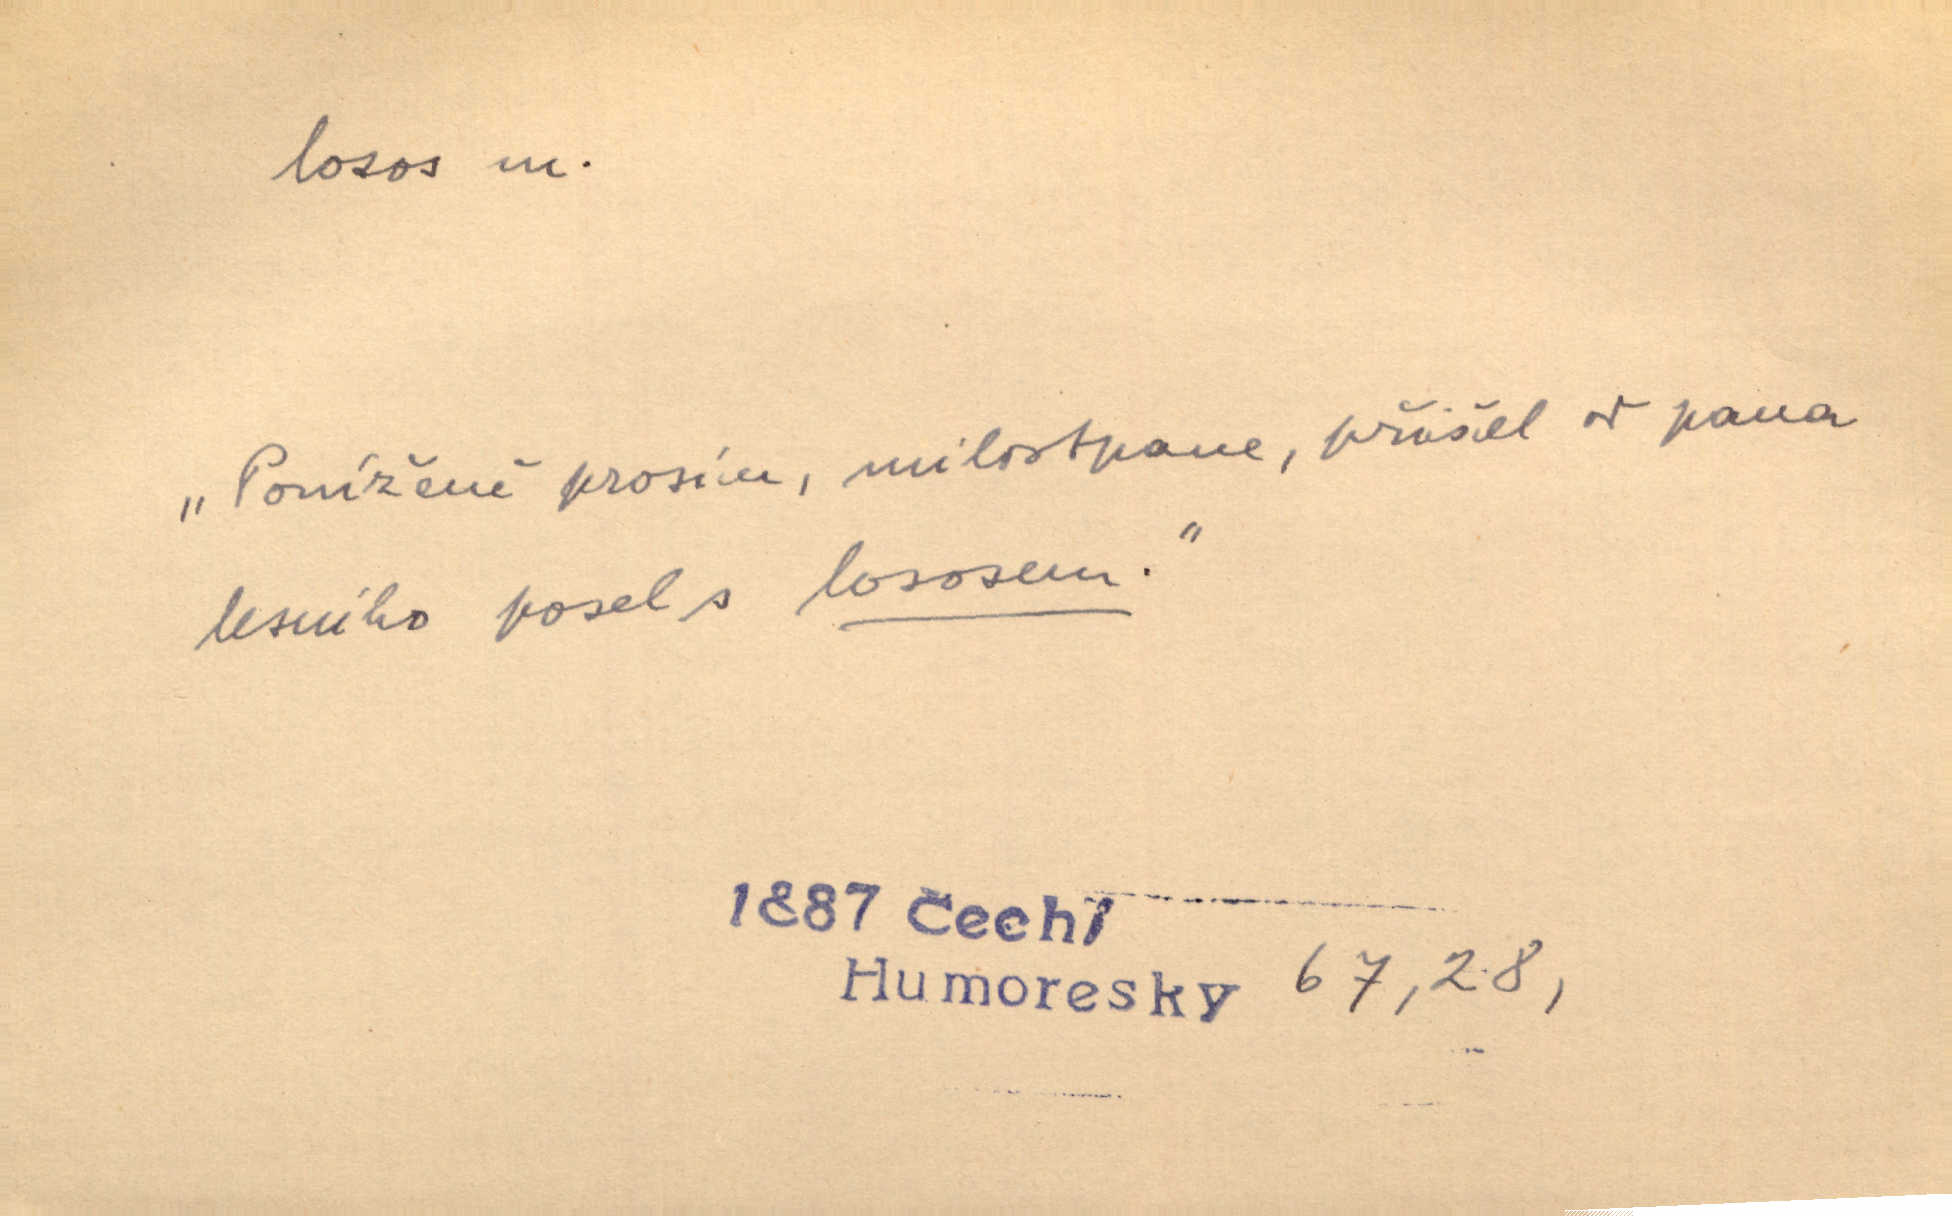 losos m.
„Poníženě prosím, milostpane, přišel od pana
lesního posel s lososem.“
1887 Čech1
Humoresky 67,28,